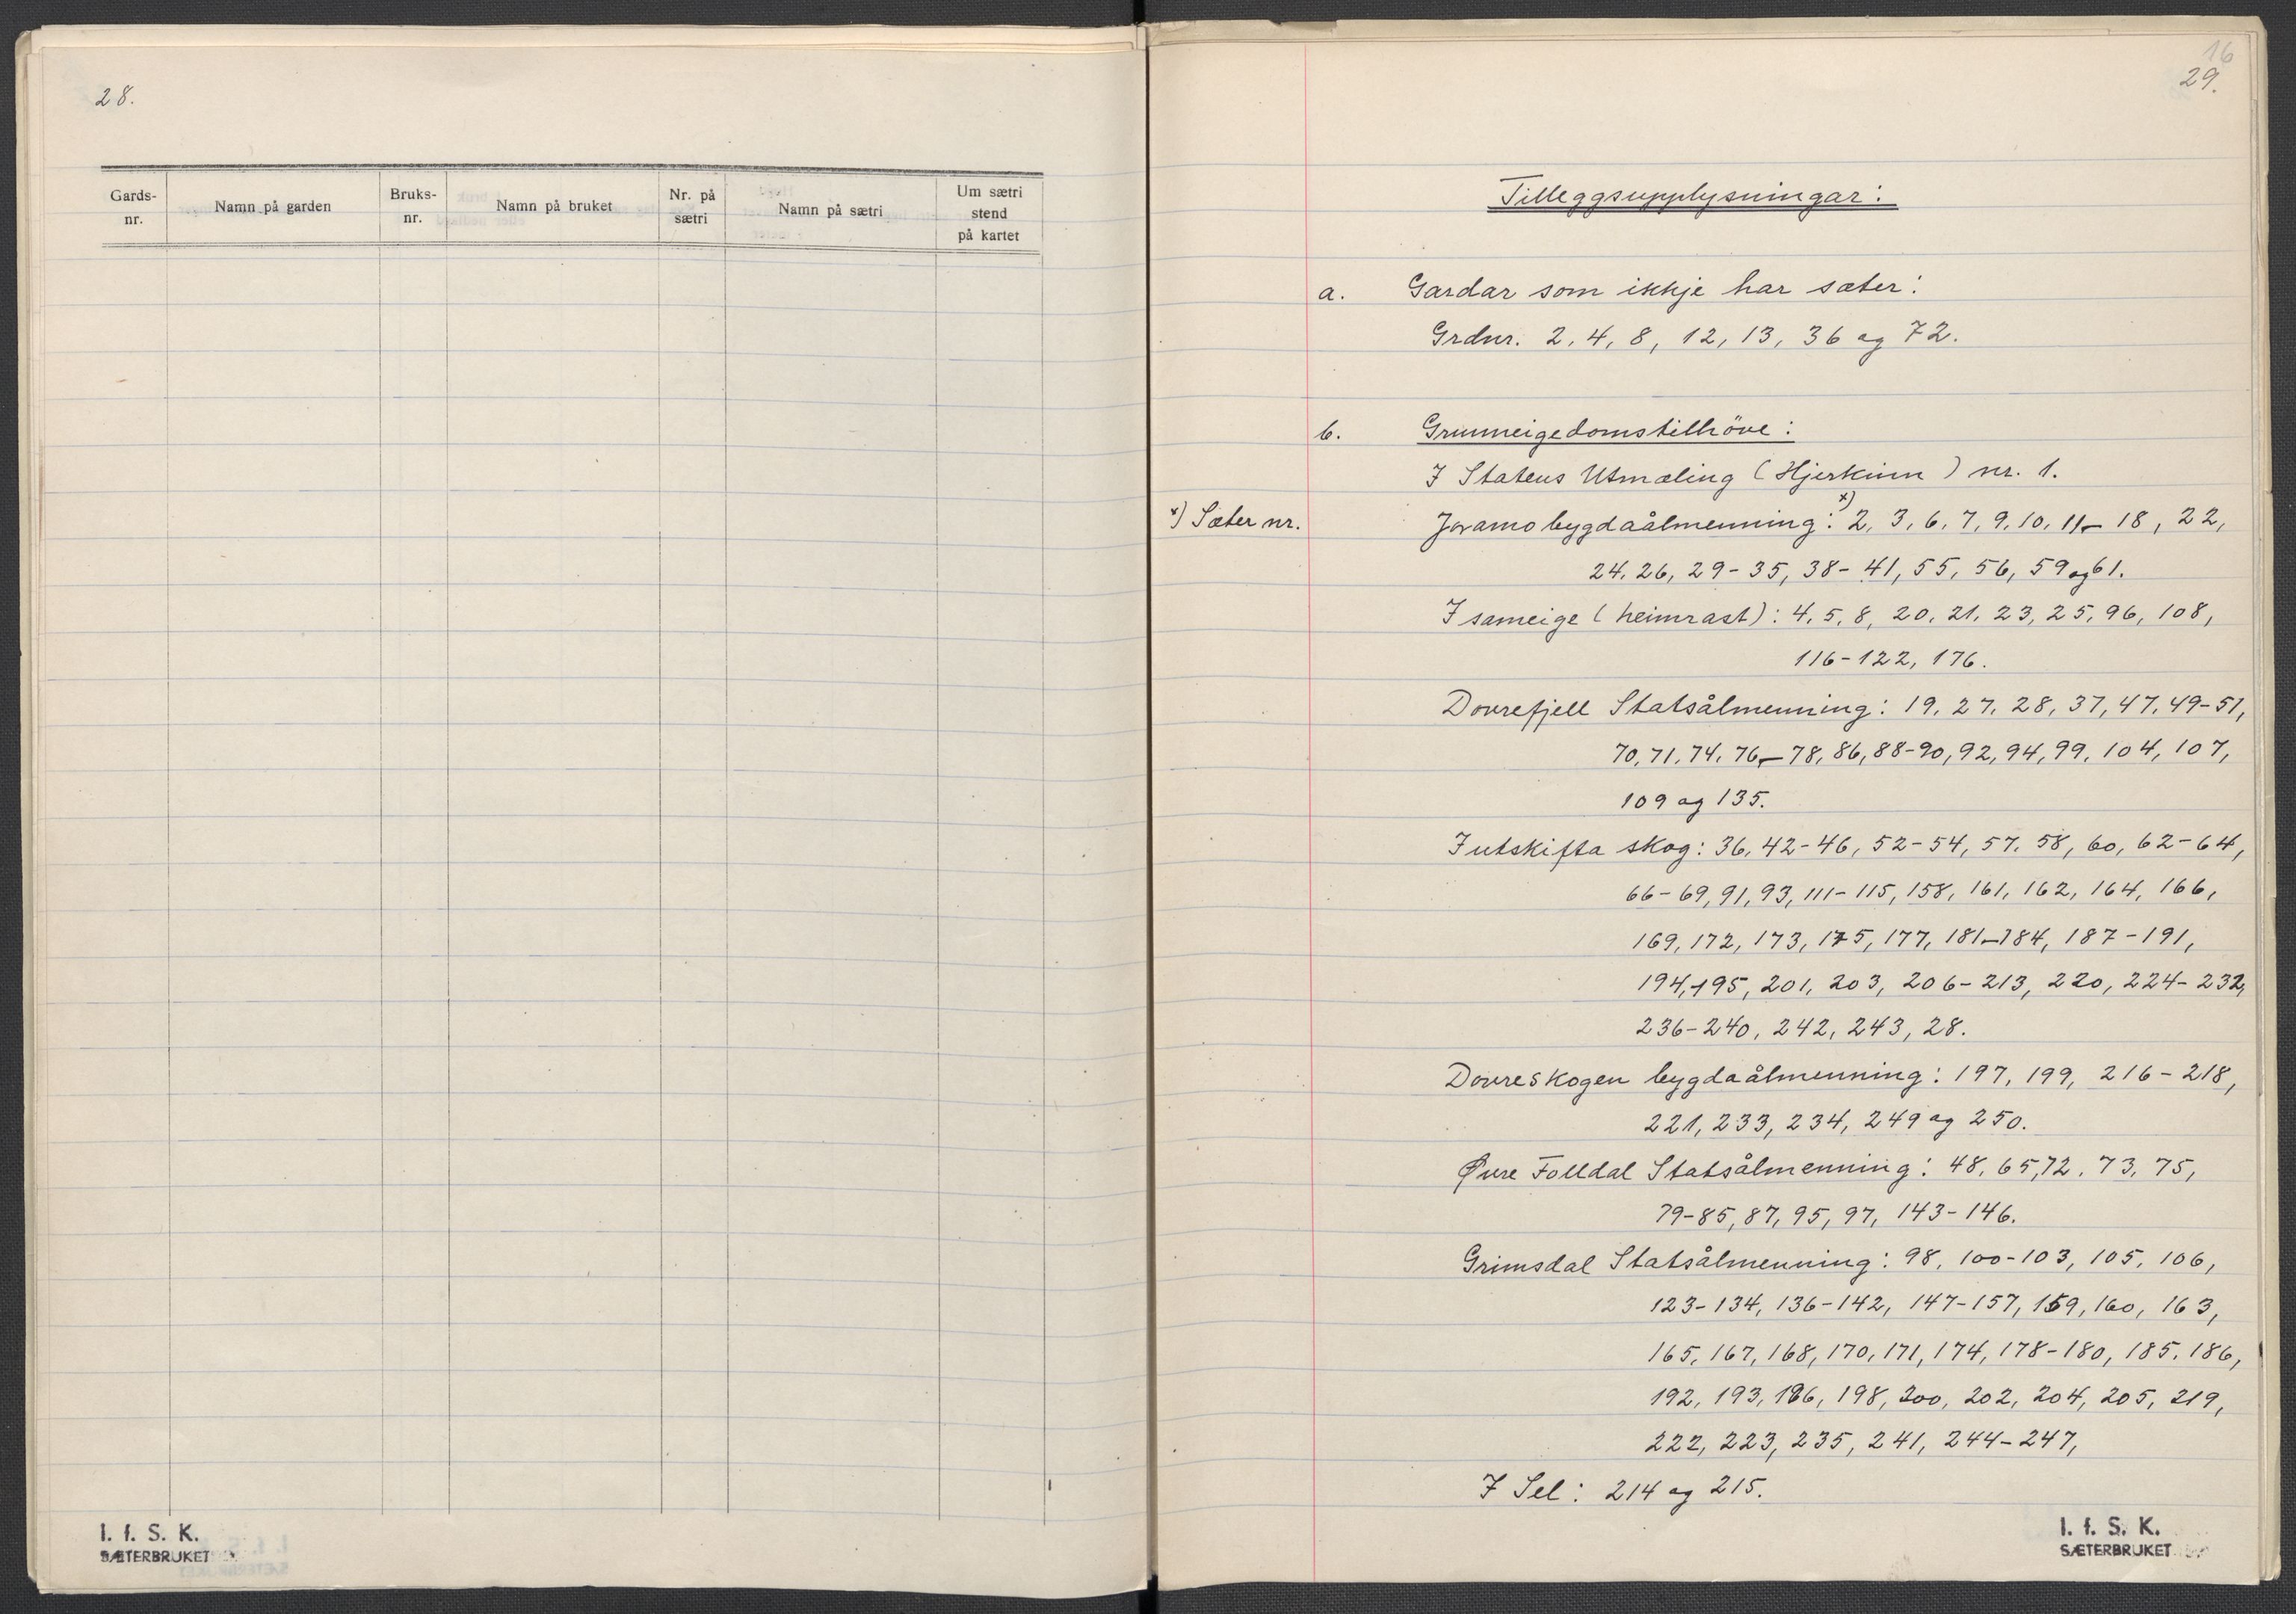 28.
Gards-
nr.
Namn på garden
Bruks-
nr.
Namn på bruket
Nr. på
sætri
Namn på sætri
Um sætri
stend
på kartet
I. f. S. K.
SÆTERBRUKET
16
29.
Tilleggsupplysningar:
a. Gardar som ikkje har sæter:
Grdnr. 2, 4, 8, 12, 13, 36 og 72.
b. Grunneigedomstilhöve:
I Statens Utmæling (Hjerkinn) nr. 1.
x) Sæter nr. Joramo bygdaålmenning: x) 2, 3, 6, 7, 9, 10, 11-18, 22,
24, 26, 29-35, 38-41, 55, 56, 59 og 61.
I sameige (heimrast): 4, 5, 8, 20, 21, 23, 25, 96, 108,
116-122, 176.
Dovrefjell Statsålmenning: 19, 27, 28, 37, 47, 49-51,
70, 71, 74, 76-78, 86, 88-90, 92, 94, 99, 104, 107,
109 og 135.
I utskifta skog: 36, 42-46, 52-54, 57, 58, 60, 62-64,
66-69, 91, 93, 111-115, 158, 161, 162, 164, 166,
169, 172, 173, 175, 177, 181-184, 187-191,
194, 195, 201, 203, 206-213, 220, 224-232,
236-240, 242, 243, 28.
Dovreskogen bygdaålmenning: 197, 199, 216-218,
221, 233, 234, 249 og 250.
Øvre Folldal Statsålmenning: 48, 65, 72, 73, 75,
79-85, 87, 95, 97, 143-146.
Grimsdal Statsålmenning: 98, 100-103, 105, 106,
123-134, 136-142, 147-157, 159, 160, 163,
165, 167, 168, 170, 171, 174, 178-180, 185, 186,
192, 193, 196, 198, 200, 202, 204, 205, 219,
222, 223, 235, 241, 244-247,
I Sel: 214 og 215.
I. f. S. K.
SÆTERBRUKET